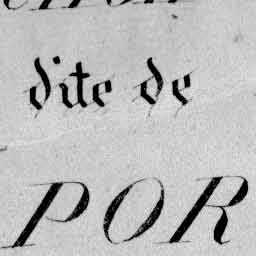 dite de
POR